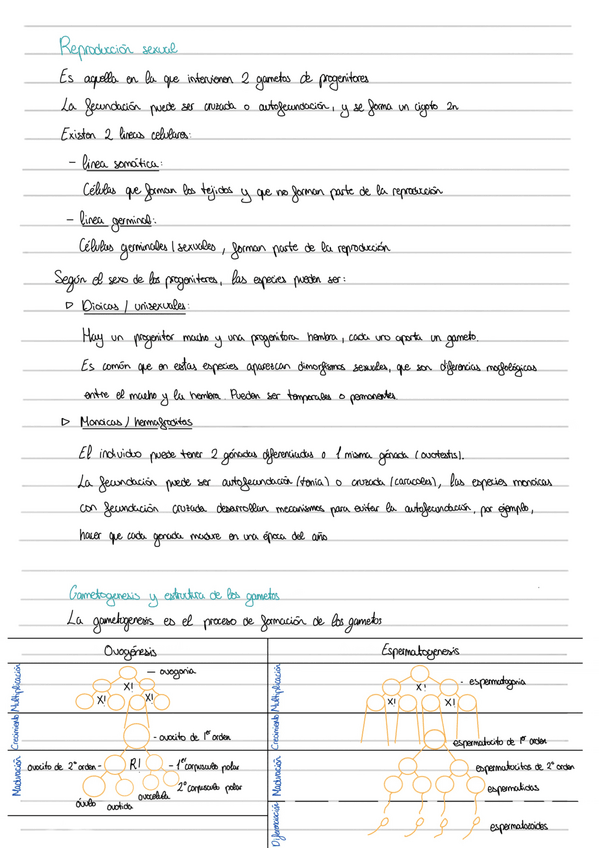 Reproducción sexual
Es aquella en la que intervienen 2 gametos de progenitores
La fecundación puede ser cruzada o autofecundación, y se forma un cigoto 2n
Existen 2 lineas celulares:
- linea somática:
Células que forman los tejidos y que no forman parte de la reproducción
- linea germinal:
Células germinales / sexuales, forman parte de la reproducción
Según el sexo de los progenitores, las especies pueden ser:
▷ Dioicas / unisexuales:
Hay un progenitor macho y una progenitora hembra, cada uno aporta un gameto.
Es común que en estas especies aparezcan dimorfismos sexuales, que son diferencias morfológicas
entre el macho y la hembra. Pueden ser temporales o permanentes
▷ Monoicas / hermafroditas
El individuo puede tener 2 gónadas diferenciadas o 1 misma gónada (ovotestis).
La fecundación puede ser autofecundación (tenia) o cruzada (caracoles), las especies monoicas
con fecundación cruzada desarrollan mecanismos para evitar la autofecundación, por ejemplo,
hacer que cada gonada madure en una época del año
Gametogenesis y estructura de los gametos
La gametogenesis es el proceso de formación de los gametos
Ovogénesis
Multiplicación
- ovogonia
X!
X!
X!
Crecimiento
- ovocito de 1er orden
Maduración
ovocito de 2º orden -
R!
- 1er corpusculo polar
2º corpusculo polar
óvulo
ovotida
ovocélula
Espermatogenesis
Multiplicación
- espermatogonia
X!
X!
X!
Crecimiento
espermatocito de 1er orden
Maduración
espermatocitos de 2º orden
espermatidas
Diferenciación
espermatozoides